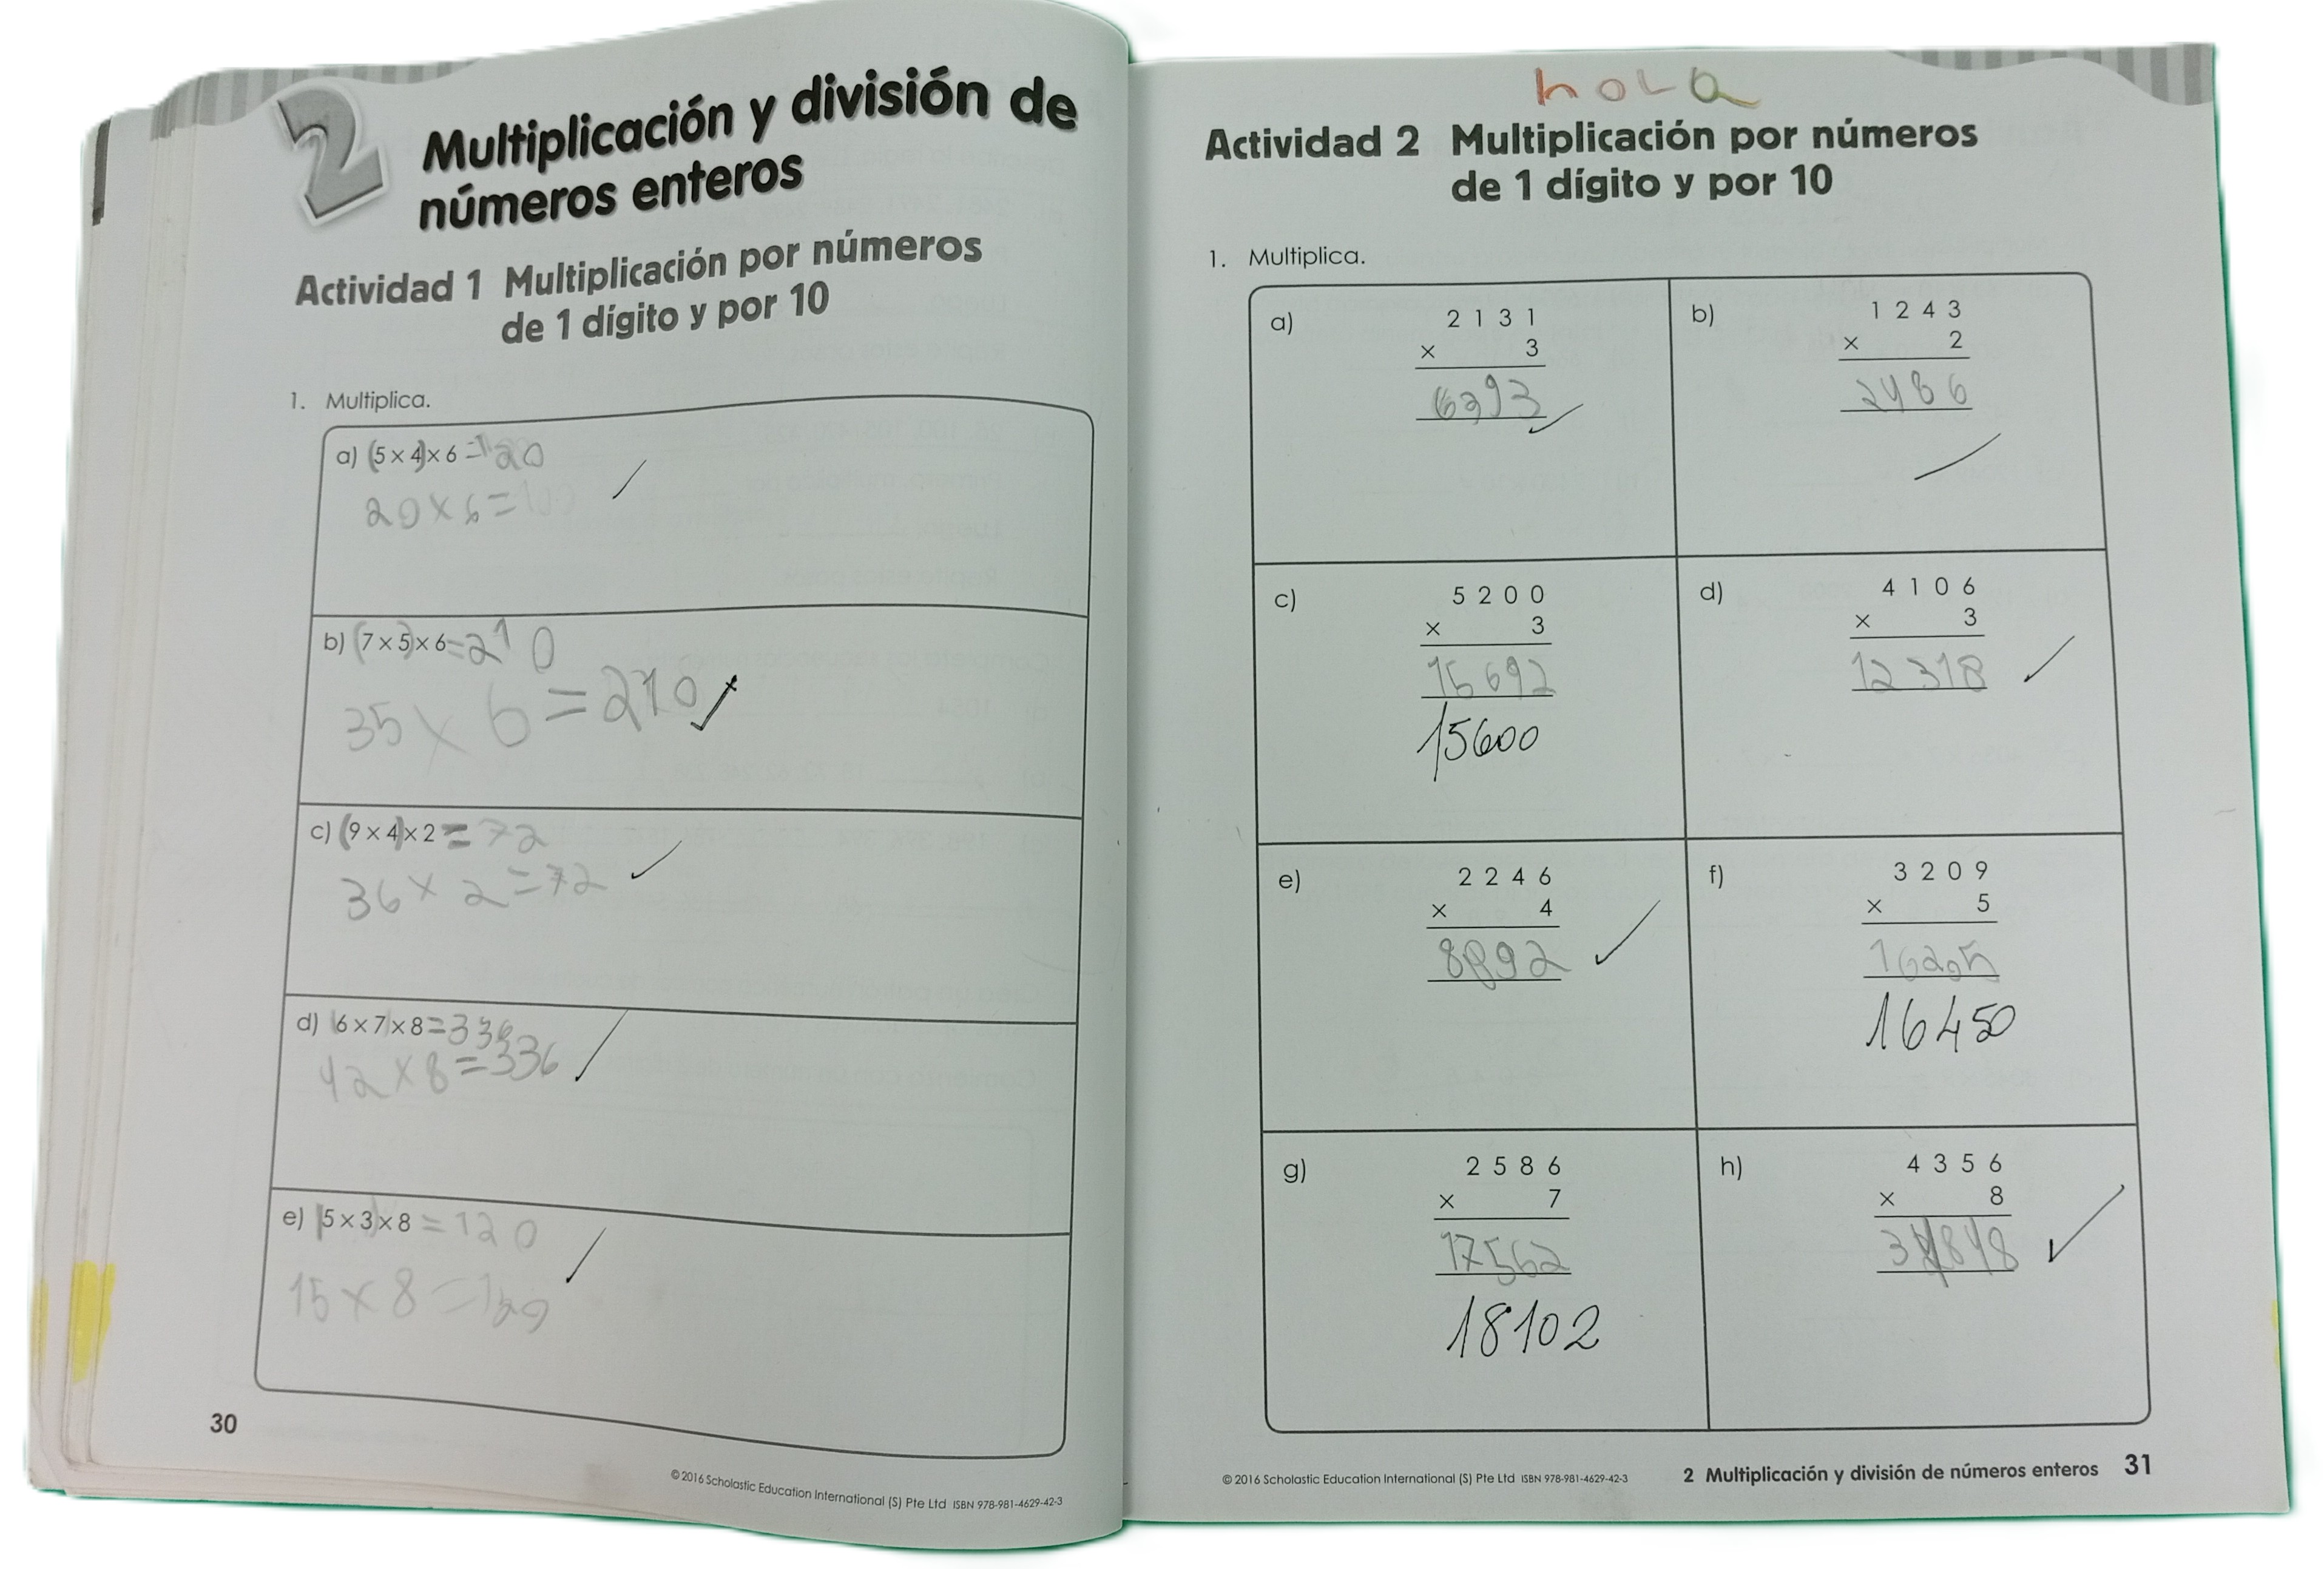 2 Multiplicación y división de
números enteros
Actividad 1 Multiplicación por números
de 1 dígito y por 10
1. Multiplica.
a) (5 × 4) × 6 = 120
20 × 6 =
b) (7 × 5) × 6 = 210
35 × 6 = 210
c) (9 × 4) × 2 = 72
36 × 2 = 72
d) (6 × 7) × 8 = 336
42 × 8 = 336
e) (5 × 3) × 8 = 120
15 × 8 = 120
30
© 2016 Scholastic Education International (S) Pte Ltd ISBN 978-981-4629-42-3
hola
Actividad 2 Multiplicación por números
de 1 dígito y por 10
1. Multiplica.
a) 2 1 3 1
× 3
6393
b) 1 2 4 3
× 2
2486
c) 5 2 0 0
× 3
15692
15600
d) 4 1 0 6
× 3
12318
e) 2 2 4 6
× 4
8892
f) 3 2 0 9
× 5
16450
g) 2 5 8 6
× 7
17562
18102
h) 4 3 5 6
× 8
34848
© 2016 Scholastic Education International (S) Pte Ltd ISBN 978-981-4629-42-3
2 Multiplicación y división de números enteros 31